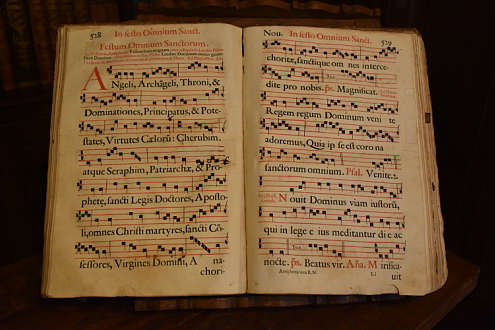 528 In festo Omnium Sanct.
Festum Omnium Sanctorum.
Angeli, Archãgeli, Throni, &
Dominationes, Principatus, & Pote-
states, Virtutes Cælorũ: Cherubim
atque Seraphim, Patriarchæ, & Pro-
phetę, sancti Legis Doctores, Aposto-
li, omnes Christi martyres, sancti Cõ-
fessores, Virgines Domini, Ana-
chori-
Nou. In festo Omnium Sanct. 529
choritæ, sanctique omnes interce-
dite pro nobis. ps. Magnificat.
Regem regum Dominum venite
adoremus, Quia ipse est corona
sanctorum omnium. Psal. Venite.
Novit Dominus viam iustorũ,
qui in lege eius meditatur die ac
nocte. ps. Beatus vir. Aña. Mirifica-
Antiphonarium R.N. Ll uit